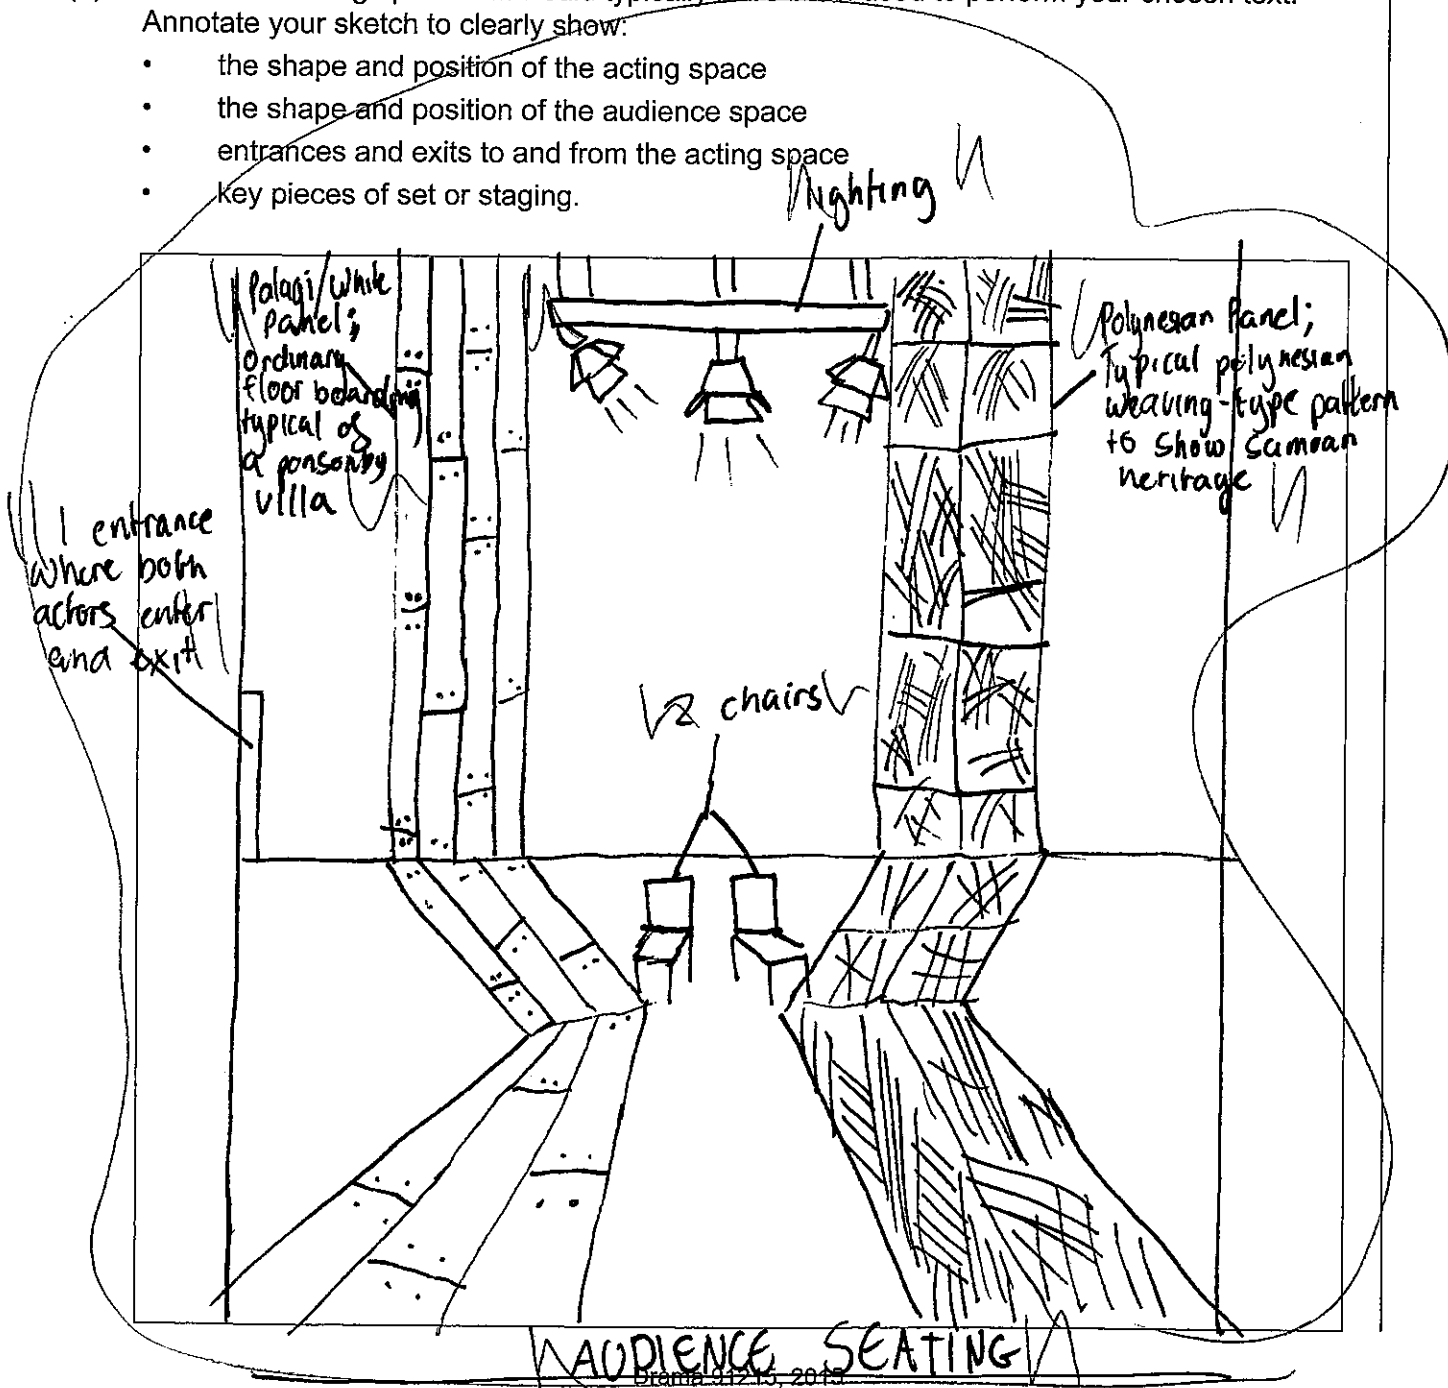 Annotate your sketch to clearly show:
• the shape and position of the acting space
• the shape and position of the audience space
• entrances and exits to and from the acting space
• key pieces of set or staging.
lighting
Palagi/White
panel;
ordinary
floor boarding
typical of
a ponsonby
villa
Polynesian Panel;
Typical polynesian
weaving-type pattern
to show samoan
heritage
1 entrance
where both
actors enter
and exit
2 chairs
AUDIENCE SEATING
Drama 91215, 2015